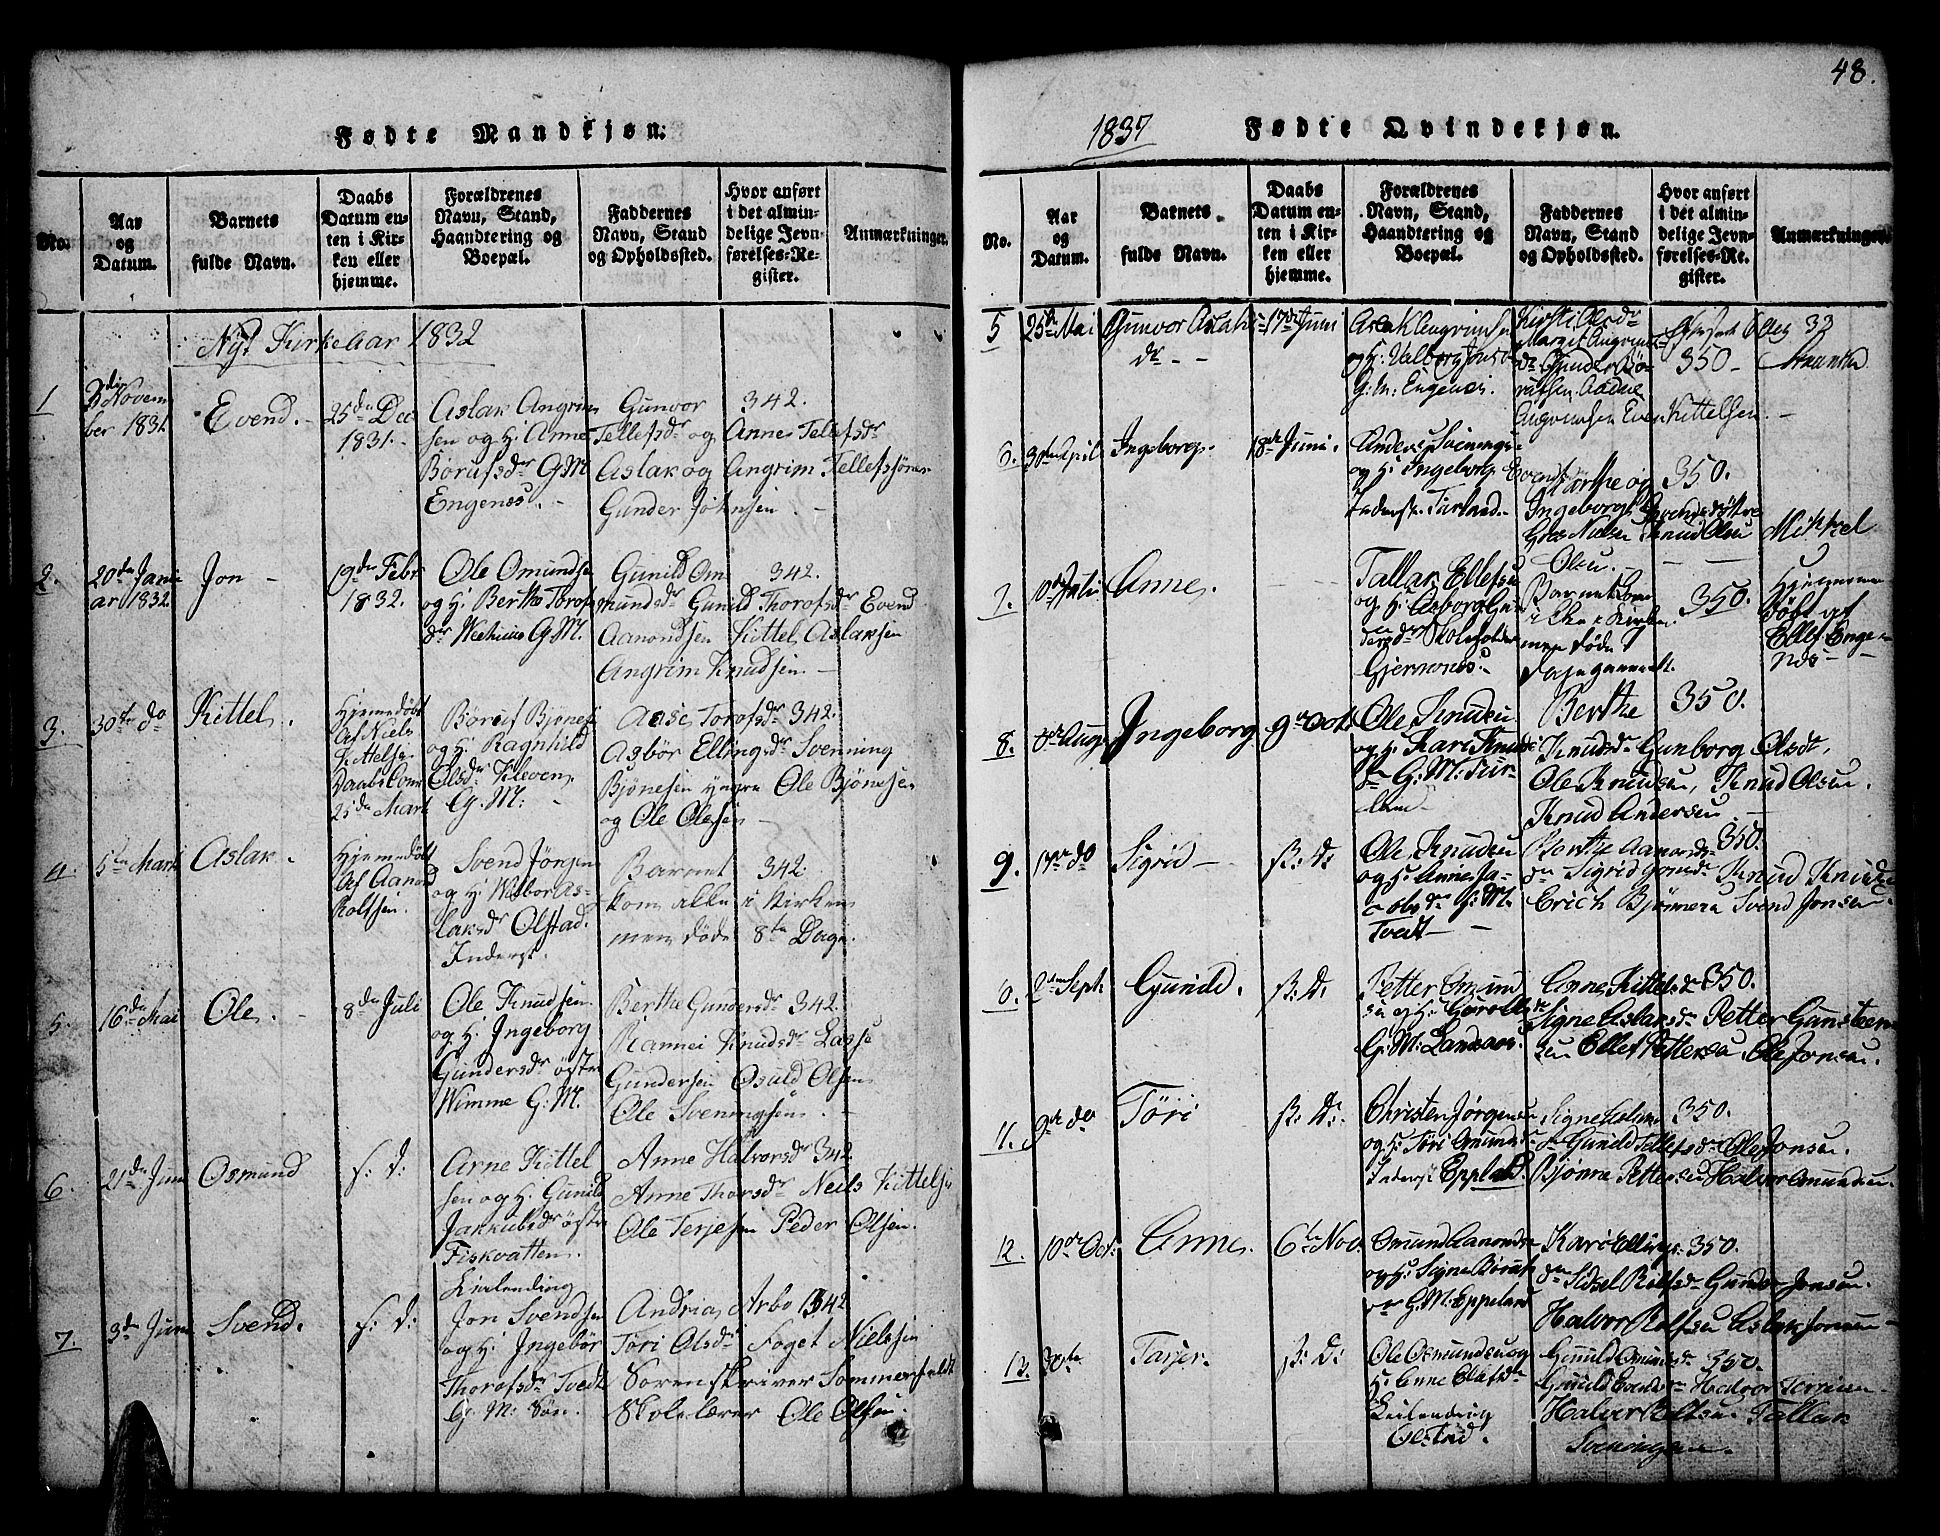 48.
Fødte Mandkjøn.
No.
Aar og Datum.
Barnets fulde Navn.
Daabs Datum enten i Kirken eller hjemme.
Forældrenes Navn, Stand, Haandtering og Boepæl.
Faddernes Navn, Stand og Opholdssted.
Hvor anført i det almindelige Jevnførelses-Register.
Anmærkninger.
Nyt Kirkeaar 1832
1
3die Novem
ber 1831.
Evend. -
25de Dec
1831.
Aslak Angrim
sen og H: Anne
Børufsdr G.M
Engenes. -
Gunvor 342.
Tellefsdr og Anne Tellefsdr
Aslak og Angrim Tellefssøner
Gunder Johnsen. -
2.
20de Janu
ar 1832.
Jon -
19de Febr
1832.
Ole Omundse
og H: Berthe Torofs
dr G.M.
Gunild Om 342.
mundsdr Gunild Thorofsdr Evend
Aanondsen Kittel Aslaksen
Angrim Knudsen -
3.
30te do
Kittel.
Hjemedöbt
af Niels
Kittelsen
25de Mart
Børuf Bjønse
og H: Ragnhild
Olsdr Kleven
G. M: -
Aase Torofsdr 342.
Asbør Ellingsdr Svenning
Bjønesen yngre Ole Bjønesen
og Ole Olesen -
4.
5te Mart
Aslak.
Hjemedöbt
Af Aanond
Rolfsen.
Svend Jörgen
og H: As-
laksdr Olstad.
Inderst.
Barnet 342
kom ikke i Kirken
men döde 8te Dage.
5.
16de Mai
Ole. -
8de Juli
Ole Knudsen
og H: Ingeborg
Gundersdr østre
Wimme G: M.
Berthe Gundersdr 342.
Rannei Knudsdr Lasse
Gundersen Osuld Olsen
Ole Sveningsen. -
6.
21de Juni
Osmund
s: d:
Arne Kittel
sen og H: Gunild
Jakkubsdr østre
Fiskvatten.
Anne Halvorsdr 342
Anne Thorsdr Neils Kittelse
Ole Terjesen Peder Olsen.
7
3de Juni
Svend.
s: d:
Leilending
Jon Svendsen
og H: Ingebör
Thorofsdr Tvedt
G. M: Søn.
Andrias Arbo 342
Töri Olsdr Foget Nielsen
Sorenskriver Sommerfeldt
Skolelærer Ole Olsen.
1837
Fødte Qvindekjøn.
No.
Aar og Datum.
Barnets fulde Navn.
Daabs Datum enten i Kirken eller hjemme.
Forældrenes Navn, Stand, Haandtering og Boepæl.
Faddernes Navn, Stand og Opholdssted.
Hvor anført i det almindelige Jevnførelses-Register.
Anmærkninger.
5
25de Mai
Gunvor Aslaks
dr - -
17de Juni
Aslak Angrimsen
og H: Valborg Jons
G: M: Engenes.
Kirsti Olsdr
Margit Angrims
dr Gunder Bø-
rufsen Aadne
Angrimsen Even Kittelsen. -
350 -
6.
30te April
Ingeborg.
18de Juni.
Anders Svenings-
og H: Ingeborg Evends
Inderst Turland -
Berthe og 350.
Ingeborg
Gres Nielsen Knud Olsen
Mikkel
Olsen. - - -
7.
10de Juli
Anne.
- -
Tallak Ellefsen
og H: Asborg Gun
dersdr Skoleholder
Gjernenes.
Barnet kom
ikke i Kirken
men døde
Dage gammelt.
350.
Hjemme
døbt af
Ellef Enge-
nes -
8.
8de Aug
Ingeborg
9de Oct
Ole Knudsen
og H: Kari Knuds
dr G: M: Tur-
land
Berthe 350.
Knudsdr Gunborg Olsdt,
Ole Knudsen, Knud Olsen.
Knud Andersen -
9.
17de do
Sigrid -
s: d:
Ole Knudsen
og H: Anne Ja-
cobsdr G: M.
Tvedt -
Berthe Aanonds 350.
dr Sigrid Knud Knuds
Erich Bjønnesen Svend Jonsen
10.
2den Sept.
Gunild.
s: d:
Petter Omund
sen og H: Guroe
G: M: Landaas.
Anne Kittelsdr 350.
Signe Aslaksdr Petter Gunsteen
sen Ellef Pettersen. Ole Jonsen.
11.
9de do
Töri
s: d:
Christen Jørgensen
og H: Töri Omundsdr
Inderst Eppeland
350.
dr Gunild Tellefsdr Ole Jonsen.
Bjønne Pettersen Halvor Omundsen.
12.
10de Oct:
Anne.
6te Nov.
Omund Aanonds
og H: Signe Børufs
dr G: M: Eppeland
Kari Ellings 350.
dr Sidsel Rolfsdr Gunder Jonsen.
Halvor Rolfsen Aslak Jonsen -
13.
30te
Tarjer.
s: d:
Ole Osmundsen og
H: Anne Olafsdr
Leilending
Olstad.
Gunild Omundsdr 350.
Gunild Halvor
Halvor Rolfsen Tallak
Sveningsen.